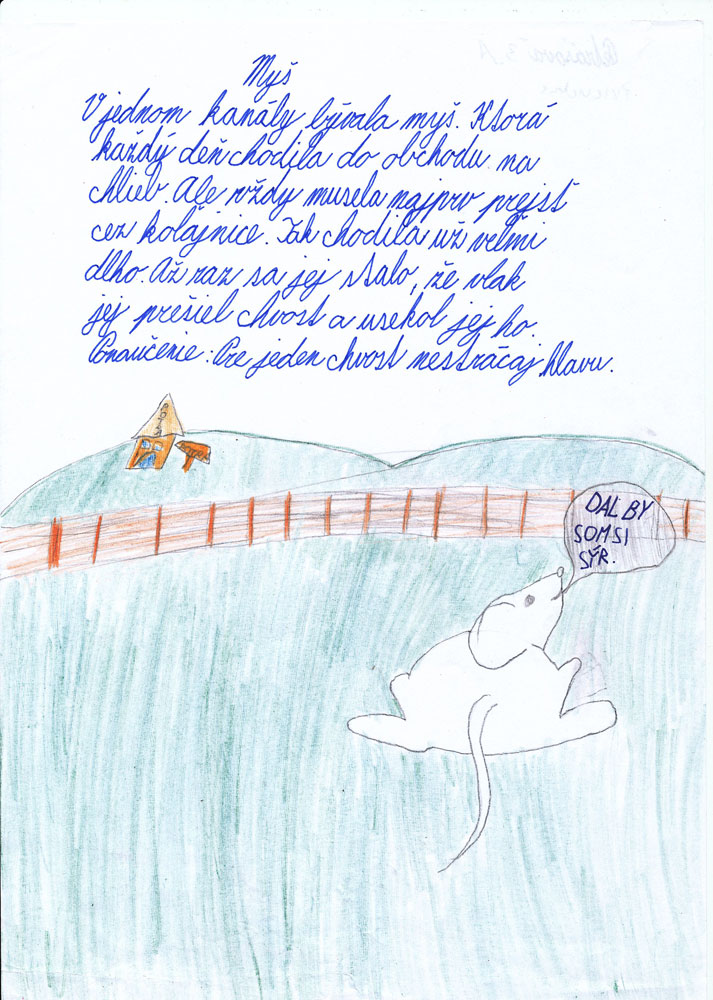 Myš
V jednom kanály bývala myš. Ktorá
každý deň chodila do obchodu na
chlieb. Ale vždy musela najprv prejsť
cez kolajnice. Tak chodila už veľmi
dlho. Až raz sa jej stalo, že vlak
jej prešiel chvost a usekol jej ho.
Ponaučenie: Pre jeden chvost nestrácaj hlavu.
DAL BY
SOM SI
SÝR.